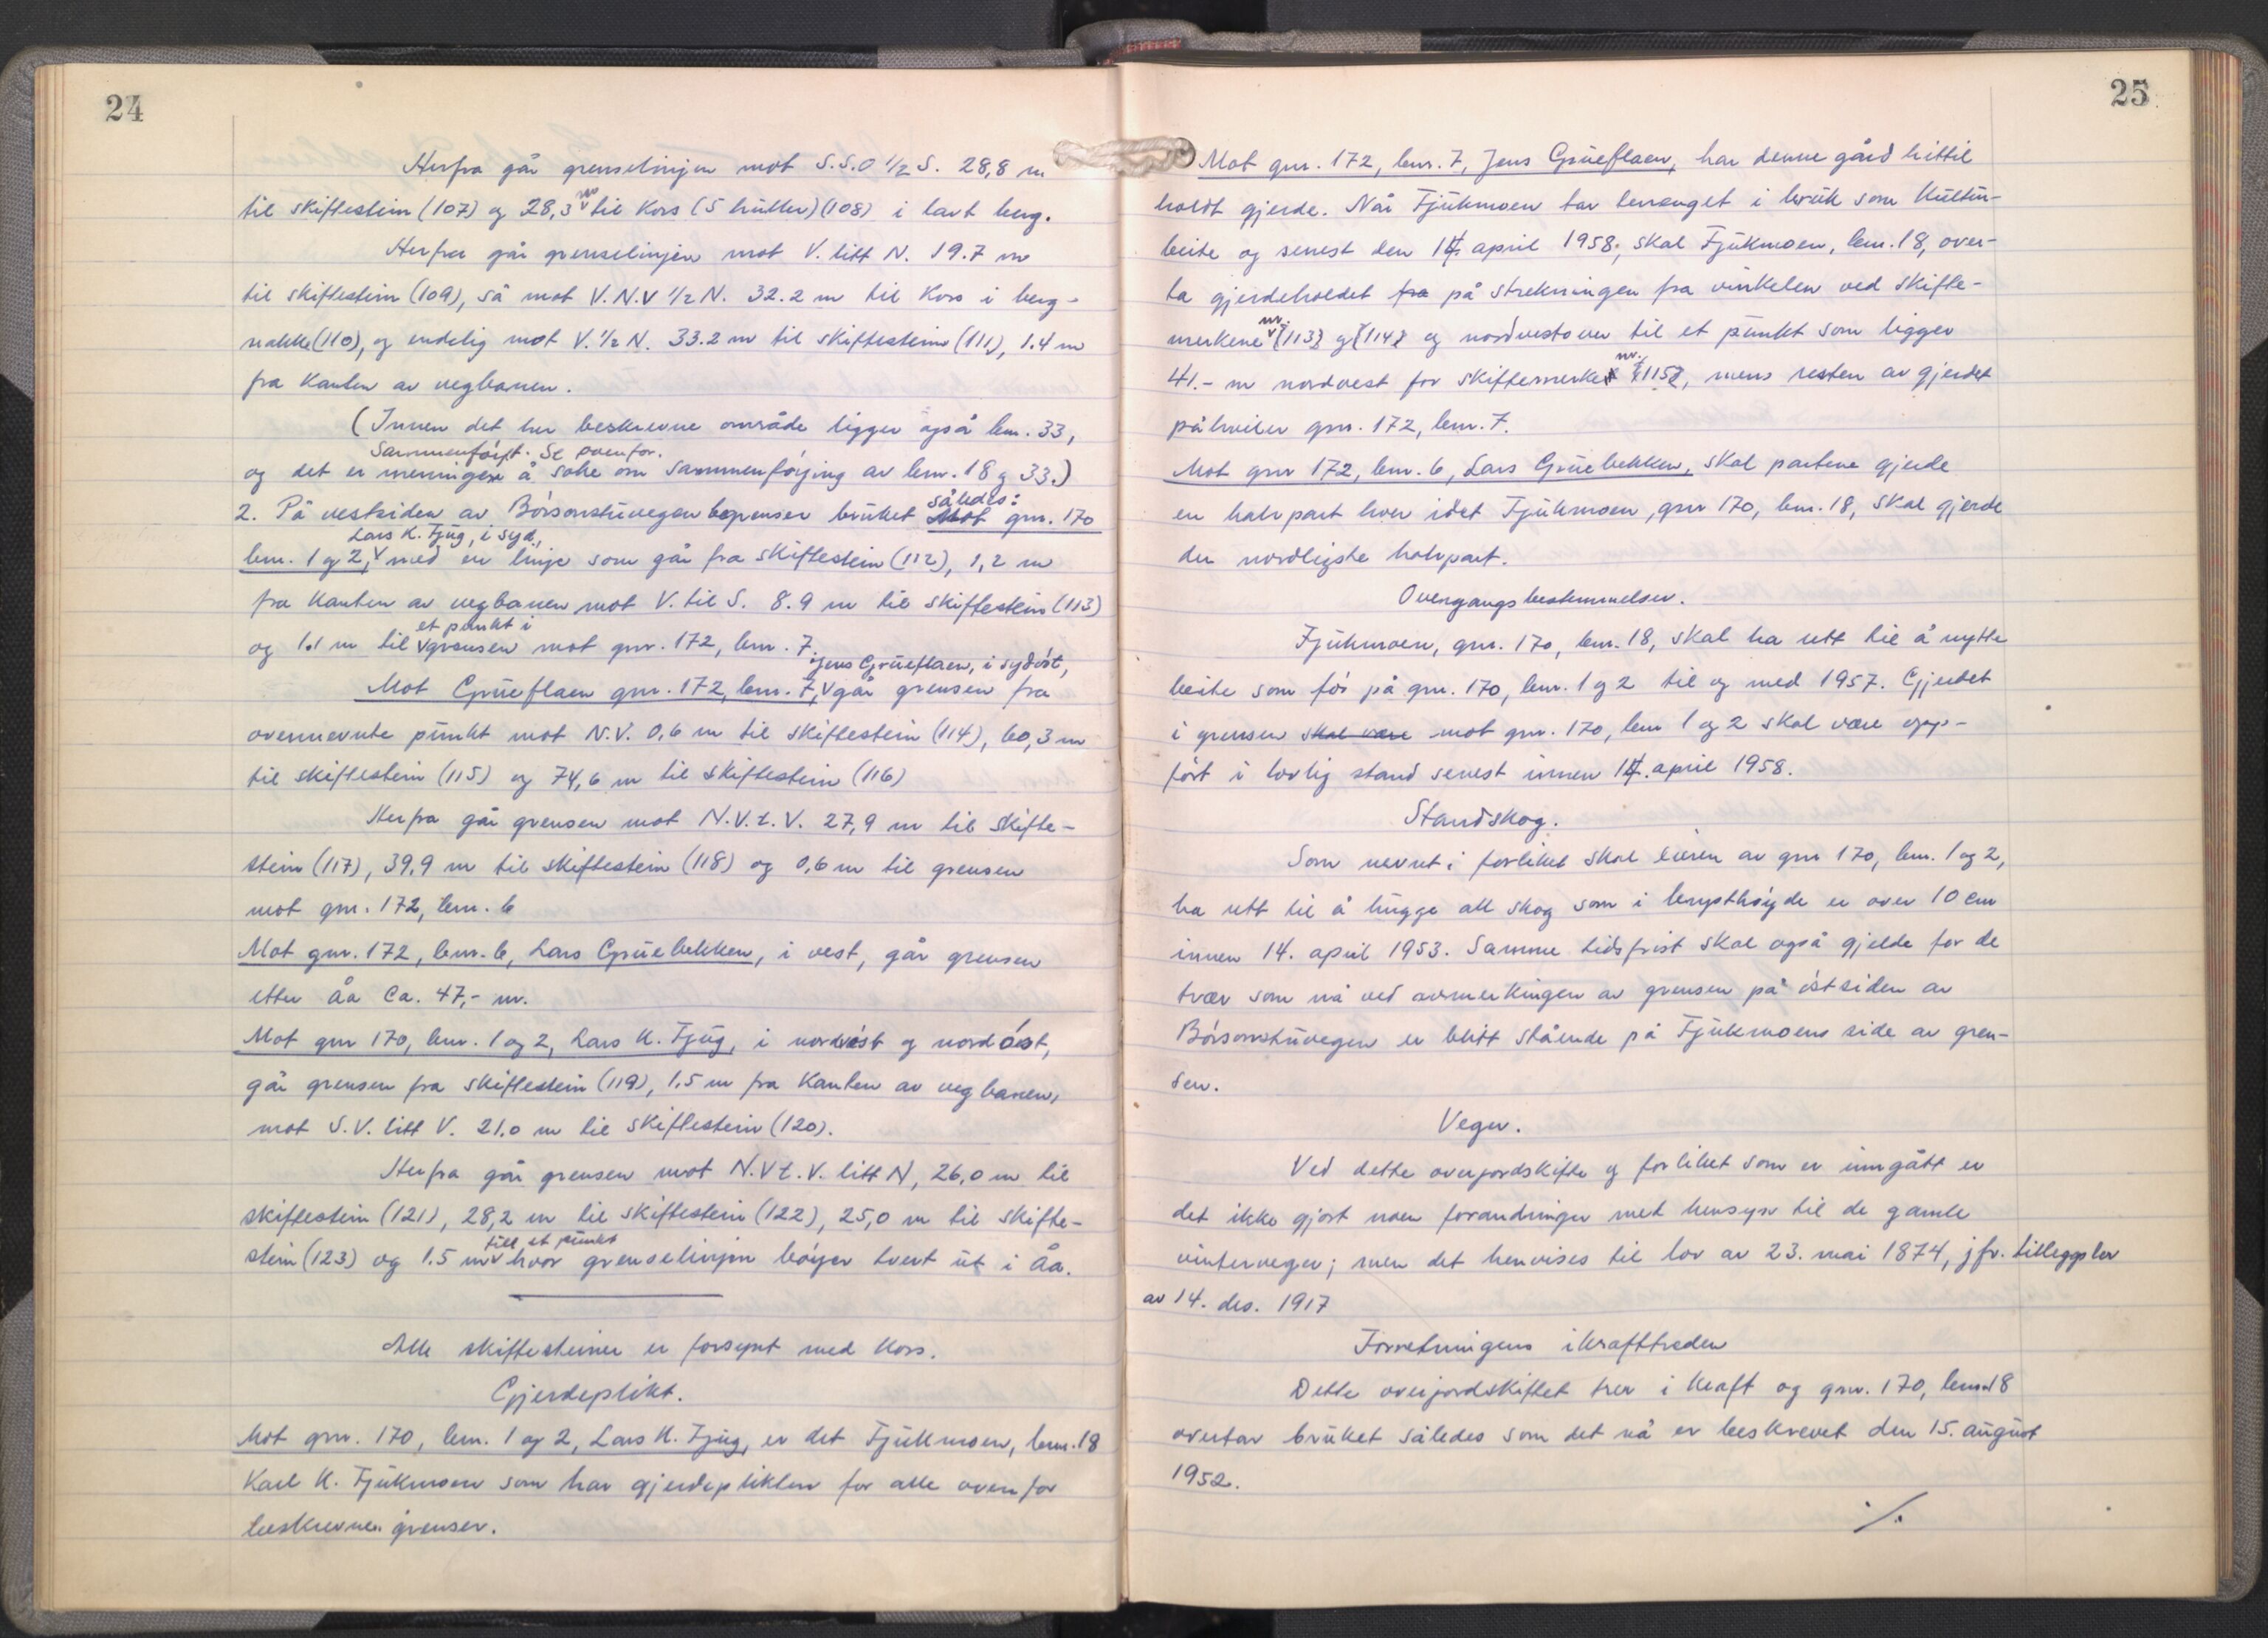 24
Herfra går grenselinjen mot S.S.O ½ S. 28,8 m
til skiftestein (107) og 28,3 m til kors (5 huller) (108) i lavt berg.
Herfra går grenselinjen mot V. litt N. 19.7 m
til skiftestein (109), så mot V.N.V ½ N. 32.2 m til kors i berg-
nakke (110), og endelig mot V. ½ N. 33.2 m til skiftestein (111), 1.4 m
fra kanten av vegbanen.
(Innen det her beskrevne område ligger også bnr. 33,
Sammenføyt. Se ovenfor.
og det er meningen å søke om sammenføying av bnr. 18 og 33.)
således:
2. På vestsiden av Börsonstuvegen begrenser bruket Mot gnr. 170
Lars K. Fjug, i syd,
bnr. 1 og 2, med en linje som går fra skiftestein (112), 1,2 m
fra kanten av vegbanen mot V. til S. 8.9 m til skiftestein (113)
et punkt i
og 1.1 m til grensen mot gnr. 172, bnr. 7.
Jens Grueflaen, i sydöst,
Mot Grueflaen gnr. 172, bnr. 7, går grensen fra
ovennevnte punkt mot N.V. 0,6 m til skiftestein (114), 60,3 m
til skiftestein (115) og 74,6 m til skiftestein (116)
Herfra går grensen mot N.V.t.V. 27,9 m til skifte-
stein (117), 39,9 m til skiftestein (118) og 0,6 m til grensen
mot gnr. 172, bnr. 6
Mot gnr. 172, bnr. 6, Lars Gruebekken, i vest, går grensen
etter Åa ca. 47,- m.
Mot gnr 170, bnr. 1 og 2, Lars K. Fjug, i nordvest og nordöst,
går grensen fra skiftestein (119), 1,5 m fra kanten av vegbanen,
mot S.V. litt V. 21.0 m til skiftestein (120).
Herfra går grensen mot N.V.t.V. litt N, 26,0 m til
skiftestein (121), 28,2 m til skiftestein (122), 25,0 m til skifte-
till et punkt
stein (123) og 1.5 m hvor grenselinjen böyer tvert ut i Åa.
Alle skiftesteiner er forsynt med kors.
Gjerdeplikt.
Mot gnr. 170, bnr. 1 og 2, Lars K. Fjug, er det Fjukmoen, bnr. 18
Karl K. Fjukmoen som har gjerdeplikten for alle ovenfor
beskrevne grenser.
25
Mot gnr. 172, bnr. 7, Jens Grueflaen, har denne gård hittil
holdt gjerde. Når Fjukmoen tar bevenget i bruk som kultur-
beite og senest den 14. april 1958, skal Fjukmoen, bnr. 18, over-
ta gjerdeholdet fra på strekningen fra vinkelen ved skifte-
nr.
merkene (113) og (114) og nordvestover til et punkt som ligger
nr.
41.- m nordvest for skiftemerket (115), mens resten av gjerdet
påhviler gnr. 172, bnr. 7.
Mot gnr 172, bnr. 6, Lars Gruebekken, skal partene gjerde
en halvpart hver idet Fjukmoen, gnr 170, bnr. 18, skal gjerde
den nordligste halvpart.
Overgangsbestemmelser.
Fjukmoen, gnr. 170, bnr. 18, skal ha rett til å nytte
beite som för på gnr. 170, bnr. 1 og 2 til og med 1957. Gjerdet
i grensen skal være mot gnr. 170, bnr 1 og 2 skal være opp-
fört i lovlig stand senest innen 14. april 1958.
Standskog.
Som nevnt i forliket skal eieren av gnr 170, bnr. 1 og 2,
ha rett til å hugge all skog som i brysthöyde er over 10 cm
innen 14. april 1953. Samme tidsfrist skal også gjelde for de
trær som nå ved avmerkingen av grensen på östsiden av
Börsonstuvegen er blitt stående på Fjukmoens side av gren-
sen.
Veger.
Ved dette overjordskifte og forliket som er inngått er
det ikke gjort noen forandringer med hensyn til de gamle
vinterveger; men det henvises til lov av 23. mai 1874, jfr. tilleggslov
av 14. des. 1917
Forretningens ikrafttreden
Dette overjordskiftet trer i kraft og gnr. 170, bnr. 18
overtar bruket således som det nå er beskrevet den 15. august
1952.
./.